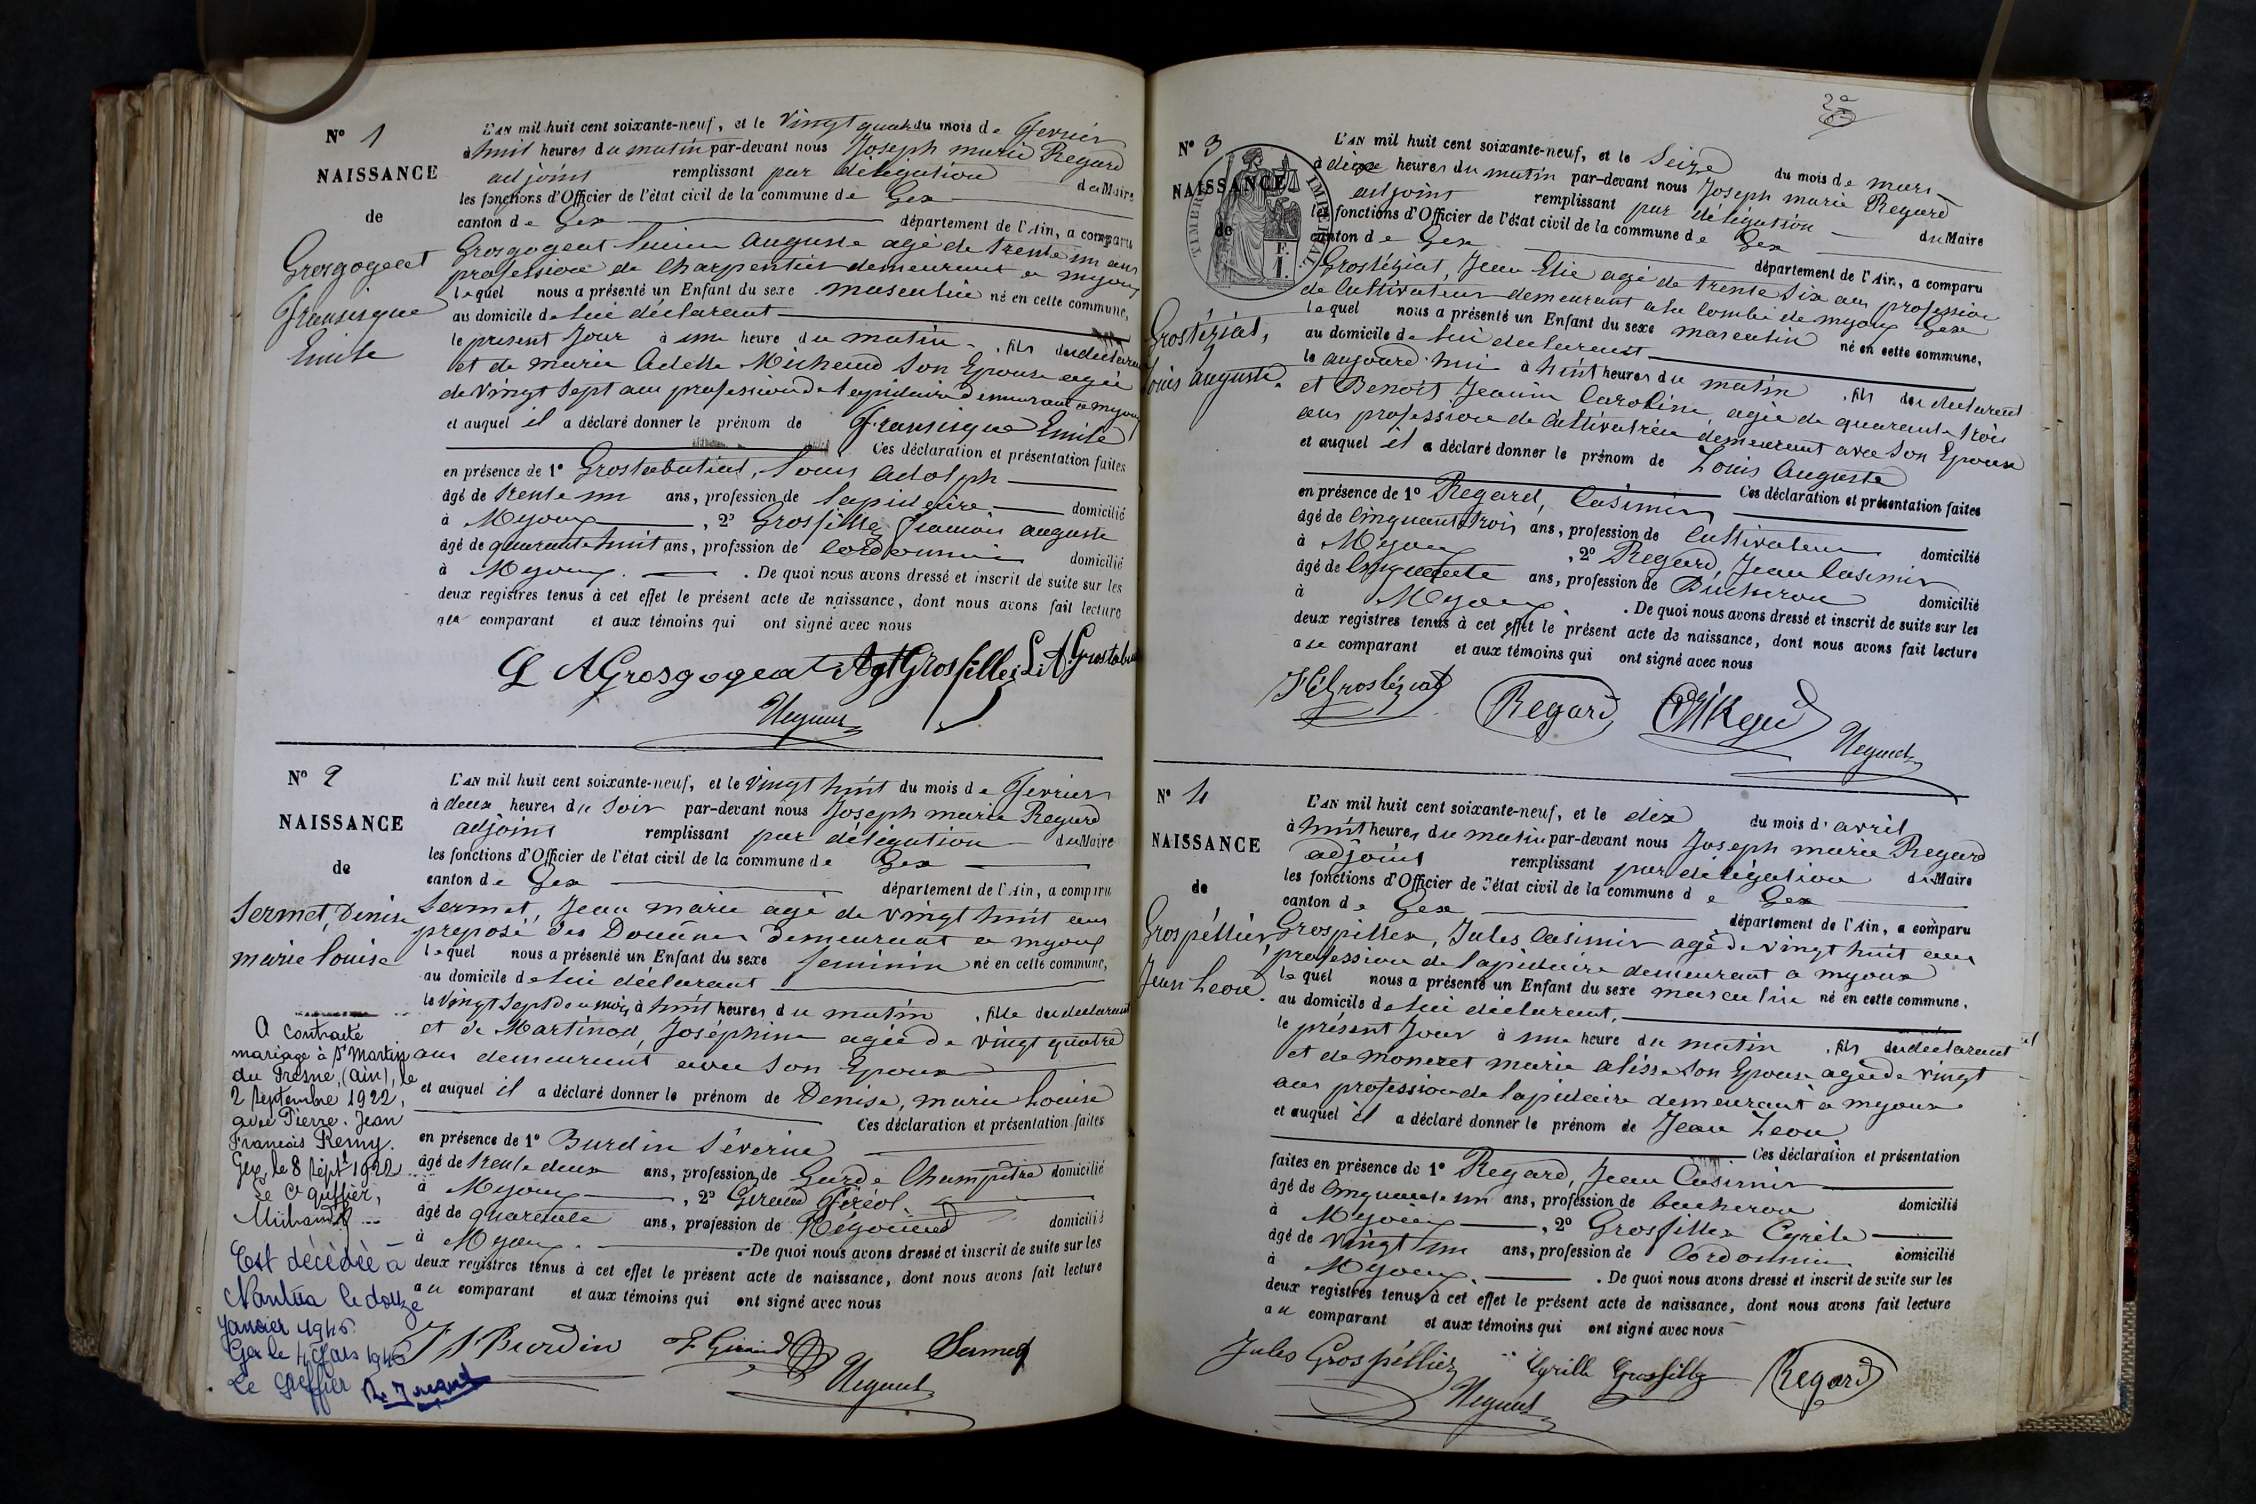 N° 1
NAISSANCE
de
Grosgogeat
Fransisque
Emile
L'AN mil huit cent soixante-neuf, et le Vingt quatre du mois de Fevrier
à huit heures du matin par-devant nous Joseph marie Regard
adjoint remplissant par délégation du Maire
les fonctions d'Officier de l'état civil de la commune de Gex
canton de Gex département de l'Ain, a comparu
Grosgogeat Lucien Auguste agé de trente un ans
profession de Charpentier demeurant a myoux
lequel nous a présenté un Enfant du sexe masculin né en cette commune,
au domicile de lui déclarant
le présent Jour à une heure du matin, fils du déclarant
et de marie Adelle Michaud Son Epouse agée
de vingt Sept ans profession de lapidaire demeurant a myoux
et auquel il a déclaré donner le prénom de Fransisque Emile
Ces déclaration et présentation faites
en présence de 1° Grostabutiat, Louis Adolph
âgé de trente un ans, profession de lapidaire domicilié
à Myoux, 2° Grosfilley francois auguste
âgé de quarante huit ans, profession de Cordonnier domicilié
à Myoux. De quoi nous avons dressé et inscrit de suite sur les
deux registres tenus à cet effet le présent acte de naissance, dont nous avons fait lecture
au comparant et aux témoins qui ont signé avec nous
L A Grosgogeat Agt Grosfilley L. A. Grostabu
N° 2
NAISSANCE
de
Sermet, Denise
marie Louise
L'AN mil huit cent soixante-neuf, et le vingt huit du mois de Fevrier
à deux heures du Soir par-devant nous Joseph marie Regard
adjoint remplissant par délégation du Maire
les fonctions d'Officier de l'état civil de la commune de Gex
canton de Gex département de l'Ain, a comparu
Sermet, Jean marie agé de vingt huit ans
preposé des Douanes demeurant a myoux
lequel nous a présenté un Enfant du sexe feminin né en cette commune,
au domicile de lui déclarant
le vingt Sept de ce mois à huit heures du matin, fille du déclarant
et de Martinod, Joséphine agée de vingt quatre
ans demeurant avec Son Epoux
et auquel il a déclaré donner le prénom de Denise, marie Louise
Ces déclaration et présentation faites
en présence de 1° Burdin Séverin
âgé de trente deux ans, profession de Garde Champêtre domicilié
à Myoux, 2° Giraud Féréol.
âgé de quarante ans, profession de Négociant domicilié
à Myoux. De quoi nous avons dressé et inscrit de suite sur les
deux registres tenus à cet effet le présent acte de naissance, dont nous avons fait lecture
au comparant et aux témoins qui ont signé avec nous
J S Burdin F. Giraud Sermet
A contracté
mariage à St Martin
du Fresne, (Ain), le
2 septembre 1922,
avec Pierre. Jean
François Remy.
Gex, le 8 Septe 1922
Le Cs greffier,
Est décédée à
Nantua le douze
Janvier 1946
Gex le 4 Mars 1946
Le Greffier
2e
N° 3
NAISSANCE
de
TIMBRE IMPERIAL
F.
1.
Grostéziat,
Louis auguste.
L'AN mil huit cent soixante-neuf, et le Seize du mois de mars
à dixe heures du matin par-devant nous Joseph marie Regard
adjoint remplissant par délégation du Maire
les fonctions d'Officier de l'état civil de la commune de Gex
canton de Gex département de l'Ain, a comparu
Grostéziat, Jean Elie agé de trente Six ans profession
de Cultivateur demeurant a la Combe de myoux Gex
lequel nous a présenté un Enfant du sexe masculin né en cette commune,
au domicile de lui déclarant
le aujourd'hui à huit heures du matin, fils du déclarant
et Benoit Jeanne Caroline agée de quarante trois
ans profession de Cultivatrice demeurant avec Son Epoux
et auquel il a déclaré donner le prénom de Louis Auguste
Ces déclaration et présentation faites
en présence de 1° Regard, Casimir
âgé de Cinquante trois ans, profession de Cultivateur domicilié
à Myoux, 2° Regard, Jean Casimir
âgé de Cinquante ans, profession de Bucheron domicilié
à Myoux. De quoi nous avons dressé et inscrit de suite sur les
deux registres tenus à cet effet le présent acte de naissance, dont nous avons fait lecture
a le comparant et aux témoins qui ont signé avec nous
J E Grostéziat Regard
N° 4
NAISSANCE
de
Grospéllier,
Jean Leon.
L'AN mil huit cent soixante-neuf, et le dix du mois d'avril
à huit heures du matin par-devant nous Joseph marie Regard
adjoint remplissant par délégation du Maire
les fonctions d'Officier de l'état civil de la commune de Gex
canton de Gex département de l'Ain, a comparu
Grospiller, Jules Casimir agé de vingt huit ans
profession de lapidaire demeurant a myoux
lequel nous a présenté un Enfant du sexe masculin né en cette commune,
au domicile de lui déclarant,
le présent Jour à une heure du matin, fils du déclarant
et de moneret marie alisse Son Epouse agée de vingt
ans profession de lapidaire demeurant à myoux
et auquel il a déclaré donner le prénom de Jean Leon
Ces déclaration et présentation
faites en présence de 1° Regard, Jean Casimir
âgé de Cinquante un ans, profession de bucheron domicilié
à Myoux, 2° Grosfilley Cyrile
âgé de vingt un ans, profession de Cordonnier domicilié
à Myoux. De quoi nous avons dressé et inscrit de suite sur les
deux registres tenus à cet effet le présent acte de naissance, dont nous avons fait lecture
au comparant et aux témoins qui ont signé avec nous
Jules Grospéllier Cyrille Grosfilley Regard